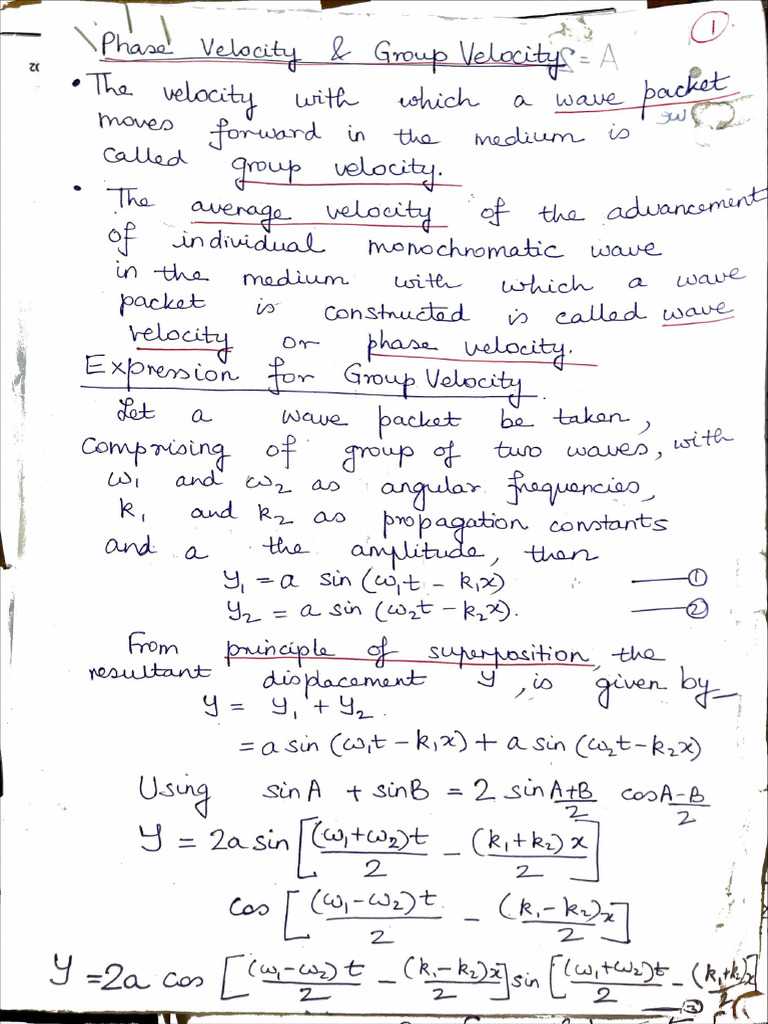 1
Phase Velocity & Group Velocity
• The velocity with which a wave packet
moves forward in the medium is
called group velocity.
• The average velocity of the advancement
of individual monochromatic wave
in the medium with which a wave
packet is constructed is called wave
velocity or phase velocity.
Expression for Group Velocity
Let a wave packet be taken,
comprising of group of two waves, with
ω1 and ω2 as angular frequencies,
k1 and k2 as propagation constants
and a the amplitude, then
y1 = a sin (ω1t - k1x) —— ①
y2 = a sin (ω2t - k2x). —— ②
From principle of superposition, the
resultant displacement y, is given by
y = y1 + y2.
= a sin (ω1t - k1x) + a sin (ω2t - k2x)
Using sin A + sin B = 2 sin A+B/2 cos A-B/2
y = 2a sin [(ω1+ω2)t/2 - (k1+k2)x/2]
cos [(ω1-ω2)t/2 - (k1-k2)x/2]
y = 2a cos [(ω1-ω2)t/2 - (k1-k2)x/2] sin [(ω1+ω2)t/2 - (k1+k2)x/2]